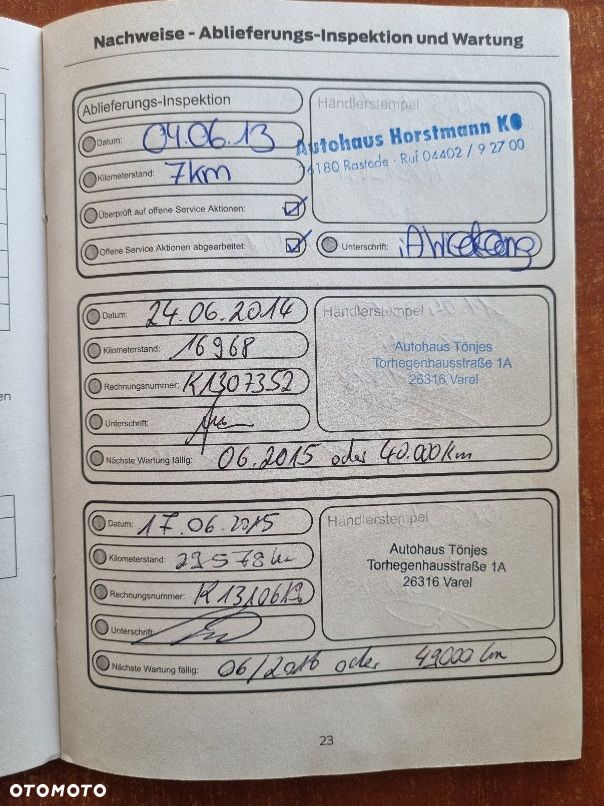 Nachweise - Ablieferungs-Inspektion und Wartung
Ablieferungs-Inspektion
Datum: 04.06.13
Kilometerstand: 7km
Überprüft auf offene Service Aktionen:
Offene Service Aktionen abgearbeitet:
Händlerstempel
Autohaus Horstmann KG
26180 Rastede · Ruf 04402 / 9 27 00
Unterschrift:
Datum: 24.06.2014
Kilometerstand: 16968
Rechnungsnummer: K1307352
Unterschrift:
Nächste Wartung fällig: 06.2015 oder 40.000km
Händlerstempel
Autohaus Tönjes
Torhegenhausstraße 1A
26316 Varel
Datum: 17.06.2015
Kilometerstand: 29578km
Rechnungsnummer:
Unterschrift:
Nächste Wartung fällig: 06/2016 oder 49000 km
Händlerstempel
Autohaus Tönjes
Torhegenhausstraße 1A
26316 Varel
23
en
OTOMOTO